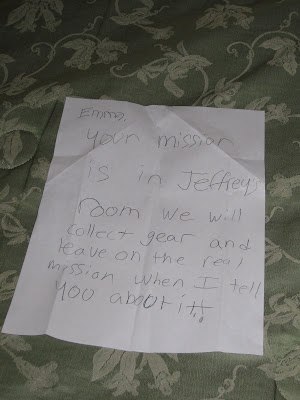 Emma,
your mission
is in Jeffreys
room we will
collect gear and
leave on the real
mission when I tell
you about it!!